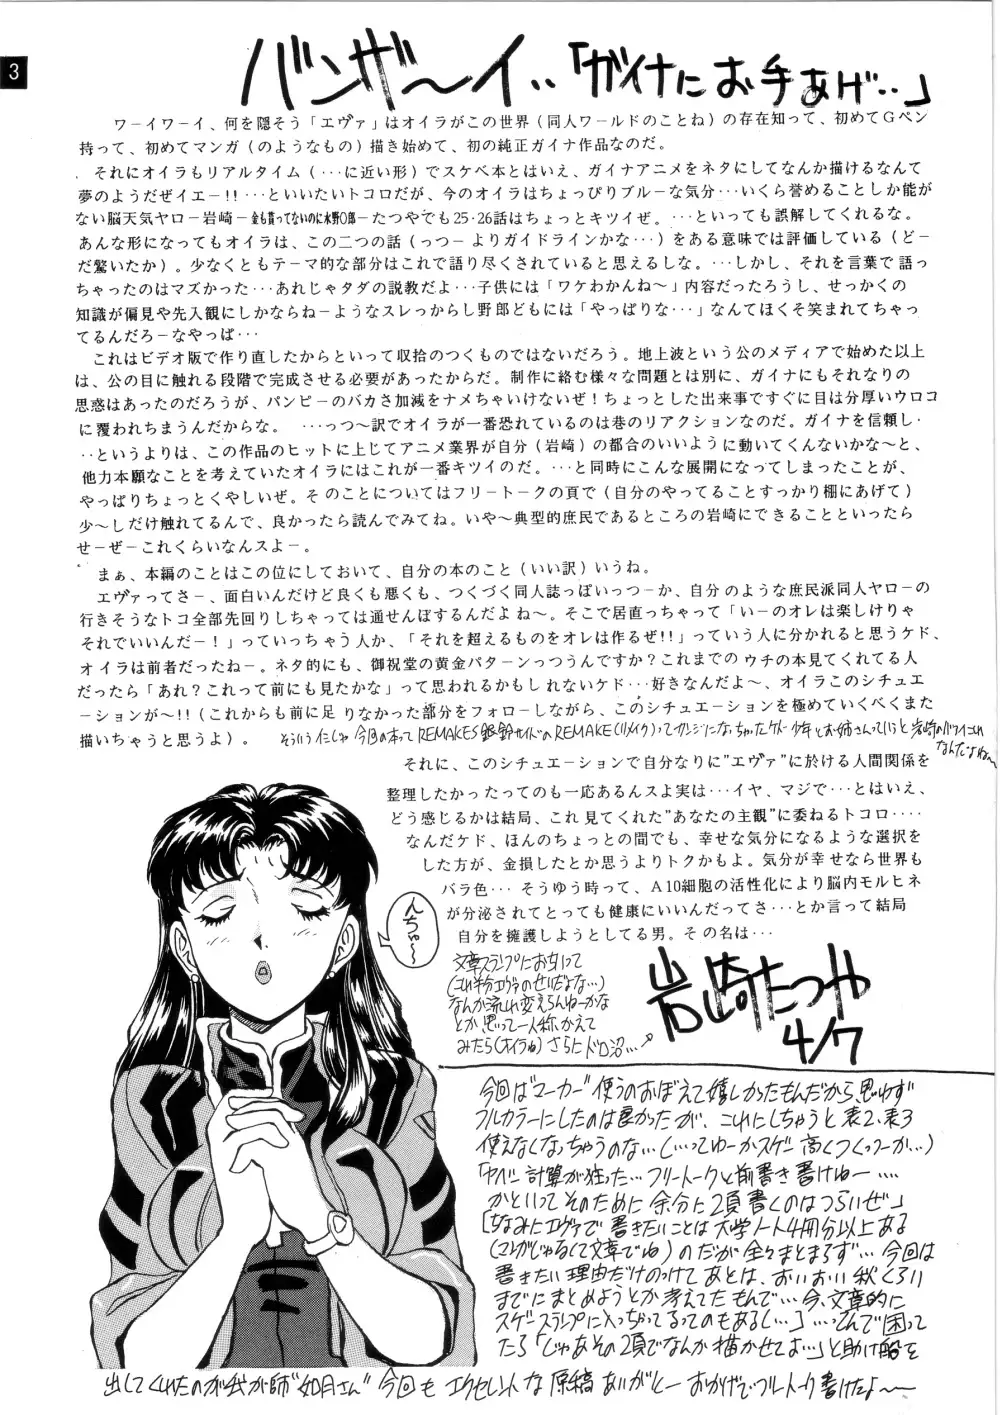 3
バンザ〜イ‥「ガイナにお手あげ‥」
ワーイワーイ、何を隠そう「エヴァ」はオイラがこの世界（同人ワールドのことね）の存在知って、初めてGペン
持って、初めてマンガ（のようなもの）描き始めて、初の純正ガイナ作品なのだ。
それにオイラもリアルタイム（‥‥に近い形）でスケベ本とはいえ、ガイナアニメをネタにしてなんか描けるなんて
夢のようだぜイエー!!‥‥といいたいトコロだが、今のオイラはちょっぴりブルーな気分‥‥いくら誉めることしか能が
ない脳天気ヤロー岩崎ー金も貰ってないのに水野○郎ーたつやでも25・26話はちょっとキツイぜ。‥‥といっても誤解してくれるな。
あんな形になってもオイラは、この二つの話（っつーよりガイドラインかな‥‥）をある意味では評価している（どー
だ驚いたか）。少なくともテーマ的な部分はこれで語り尽くされていると思えるしな。‥‥しかし、それを言葉で語っ
ちゃったのはマズかった‥‥あれじゃタダの説教だよ‥‥子供には「ワケわかんね〜」内容だったろうし、せっかくの
知識が偏見や先入観にしかならねーようなスレっからし野郎どもには「やっぱりな‥‥」なんてほくそ笑まれてちゃっ
てるんだろーなやっぱ‥‥
これはビデオ版で作り直したからといって収拾のつくものではないだろう。地上波という公のメディアで始めた以上
は、公の目に触れる段階で完成させる必要があったからだ。制作に絡む様々な問題とは別に、ガイナにもそれなりの
思惑はあったのだろうが、パンピーのバカさ加減をナメちゃいけないぜ！ちょっとした出来事ですぐに目は分厚いウロコ
に覆われちまうんだからな。‥‥っつ〜訳でオイラが一番恐れているのは巷のリアクションなのだ。ガイナを信頼し‥
‥というよりは、この作品のヒットに上じてアニメ業界が自分（岩崎）の都合のいいように動いてくんないかな〜と、
他力本願なことを考えていたオイラにはこれが一番キツイのだ。‥‥と同時にこんな展開になってしまったことが、
やっぱりちょっとくやしいぜ。そのことについてはフリートークの頁で（自分のやってることすっかり棚にあげて）
少〜しだけ触れてるんで、良かったら読んでみてね。いや〜典型的庶民であるところの岩崎にできることといったら
せーぜーこれくらいなんスよー。
まぁ、本編のことはこの位にしておいて、自分の本のこと（いい訳）いうね。
エヴァってさー、面白いんだけど良くも悪くも、つくづく同人誌っぽいっつーか、自分のような庶民派同人ヤローの
行きそうなトコ全部先回りしちゃっては通せんぼするんだよね〜。そこで居直っちゃって「いーのオレは楽しけりゃ
それでいいんだー！」っていっちゃう人か、「それを超えるものをオレは作るぜ!!」っていう人に分かれると思うケド、
オイラは前者だったねー。ネタ的にも、御祝堂の黄金パターンっつうんですか？これまでのウチの本見てくれてる人
だったら「あれ？これって前にも見たかな」って思われるかもしれないケド‥‥好きなんだよ〜、オイラこのシチュエ
ーションが〜!!（これからも前に足りなかった部分をフォローしながら、このシチュエーションを極めていくべくまた
描いちゃうと思うよ）。そういうイミじゃ今回の本って REMAKES銀鈴サイドのREMAKE(リメイク)ってカンジになっちゃったケド少年とお姉さんっていうと岩崎のパツイチこれ
なんだよね〜
それに、このシチュエーションで自分なりに"エヴァ"に於ける人間関係を
整理したかったってのも一応あるんスよ実は‥‥イヤ、マジで‥‥とはいえ、
どう感じるかは結局、これ見てくれた"あなたの主観"に委ねるトコロ‥‥
なんだケド、ほんのちょっとの間でも、幸せな気分になるような選択を
した方が、金損したとか思うよりトクかもよ。気分が幸せなら世界も
バラ色‥‥そうゆう時って、A10細胞の活性化により脳内モルヒネ
が分泌されてとっても健康にいいんだってさ‥‥とか言って結局
自分を擁護しようとしてる男。その名は‥‥
んちゅ〜
岩崎たつや
4/7
文章スランプにおちいって
(これ半分エヴァのせいだよな…)
なんか流れ変えらんねーかな
とか思って一人称かえて
みたら(オイラね)さらにドロ沼…
今回は"マーカー"使うのおぼえて嬉しかったもんだから思わず
フルカラーにしたのは良かったが、これにしちゃうと表2、表3
使えなくなっちゃうのな…(…ってゆーかスゲー高くつくっつーか…)
「ヤベー計算が狂った…フリートークと前書き書けねー…
かといってそのために余分に2頁書くのはつらいぜ」
[ちなみにエヴァで書きたいことは大学ノート4冊分以上ある
(マンガじゃなくて文章でね)のだが全々まとまらず…今回は
書きたい理由だけのっけてあとは、おいおい秋くらい
までにまとめようとか考えてたもんで…今、文章的に
スゲースランプに入っちゃってるってのもあるし…]…ってんで困って
たら「じゃあその2頁でなんか描かせてよ…」と助け船を
出してくれたのが我が師"如月さん"今回もエクセレントな原稿ありがとーおかげでフリートーク書けたよ〜〜